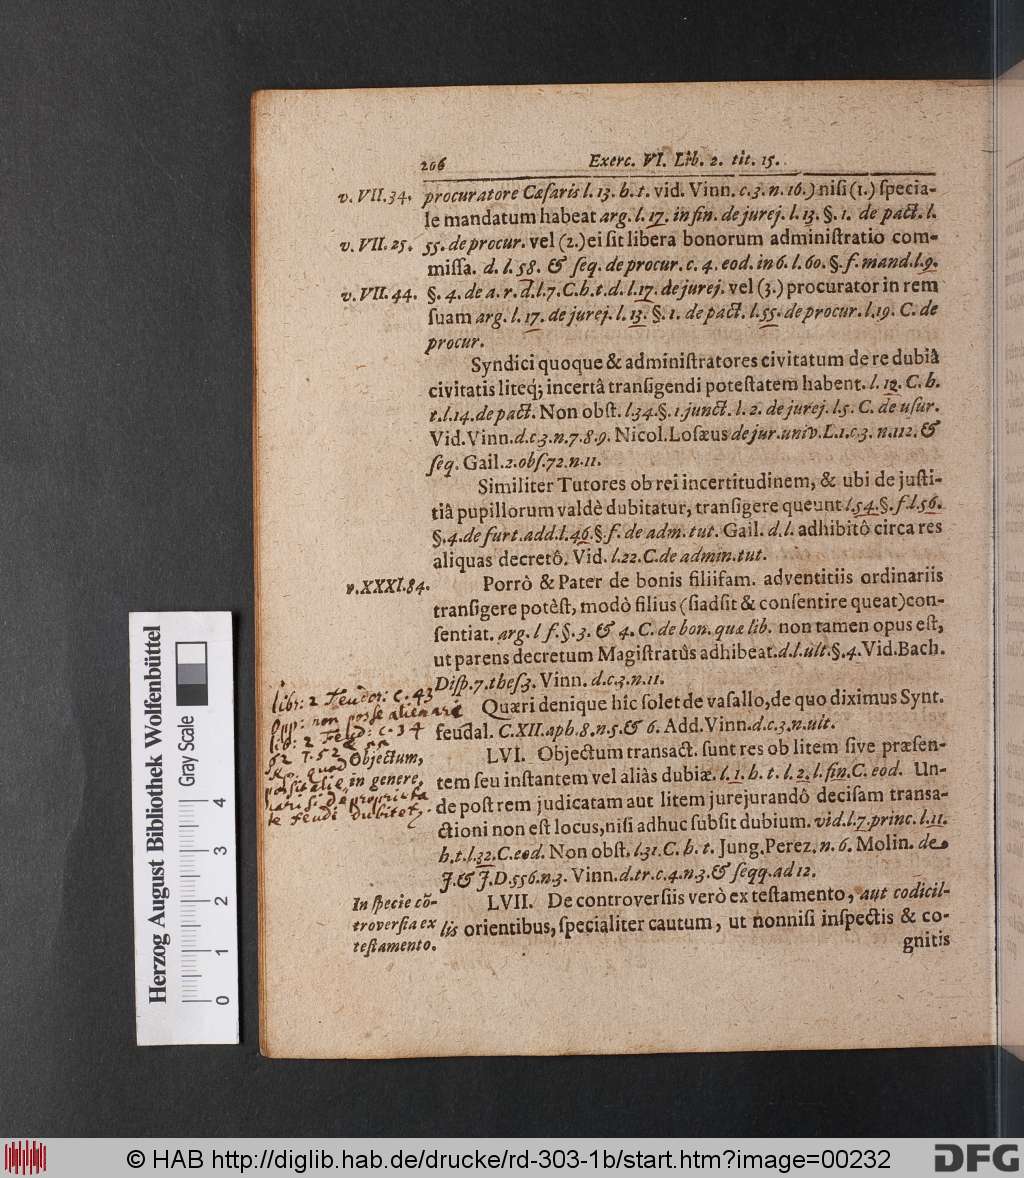 206 Exerc. VI. Lib. 2. tit. 15.
v. VII. 34. procuratore Cæsaris l. 13. h. t. vid. Vinn. c. 3. n. 16.) nisi (1.) specia-
le mandatum habeat arg. l. 17. in fin. de jurej. l. 13. §. 1. de pact. l.
v. VII. 25. 55. de procur. vel (2.) ei sit libera bonorum administratio com-
missa. d. l. 58. & seq. de procur. c. 4. eod. in 6. l. 60. §. f. mand. l. 9.
v. VII. 44. §. 4. de a. r. d. l. 7. C. h. t. d. l. 17. de jurej. vel (3.) procurator in rem
suam arg. l. 17. de jurej. l. 13. §. 1. de pact. l. 55. de procur. l. 19. C. de
procur.
Syndici quoque & administratores civitatum de re dubiâ
civitatis liteq; incertâ transigendi potestatem habent. l. 12. C. h.
t. l. 14. de pact. Non obst. l. 34. §. 1. junct. l. 2. de jurej. l. 5. C. de usur.
Vid. Vinn. d. c 3. n. 7. 8. 9. Nicol. Losæus de jur. univ. L. 1. c. 3. n. 112. &
seq. Gail. 2. obs. 72. n. 11.
Similiter Tutores ob rei incertitudinem, & ubi de justi-
tiâ pupillorum valdè dubitatur, transigere queunt l. 54. §. f. l. 56.
§. 4. de furt. add. l. 46. §. f. de adm. tut. Gail. d. l. adhibitô circa res
aliquas decretô. Vid. l. 22. C. de admin. tut.
v. XXXI. 84. Porrò & Pater de bonis filiifam. adventitiis ordinariis
transigere potèst, modò filius (si adsit & consentire queat) con-
sentiat. arg. l f. §. 3. & 4. C. de bon. quæ lib. non tamen opus est,
ut parens decretum Magistratûs adhibeat. d. l. ult. §. 4. Vid. Bach.
Disp. 7. thes 3. Vinn. d. c. 3. n. 11.
Quæri denique hîc solet de vasallo, de quo diximus Synt.
feudal. C. XII. aph. 8. n. 5. & 6. Add. Vinn. d. c. 3. n. ult.
libr: 2 feudor: c. 43
opp: non posse alienare
lib: 2 feud: c. 34
Objectum,
in genere.
LVI. Objectum transact. sunt res ob litem sive præsen-
tem seu instantem vel aliàs dubiæ. l. 1. h. t. l. 2. l. fin. C. eod. Un-
de post rem judicatam aut litem jurejurandô decisam transa-
ctioni non est locus, nisi adhuc subsit dubium. vid. l. 7. princ. l. 11.
h. t. l. 32. C. eod. Non obst. l. 31. C. h. t. Jung. Perez. n. 6. Molin. de
J. & J. D. 556. n. 3. Vinn. d. tr. c. 4. n. 3. & seqq. ad 12.
In specie cõ-
troversia ex
testamento.
LVII. De controversiis verò ex testamento, aut codicil-
lis orientibus, specialiter cautum, ut nonnisi inspectis & co-
gnitis
Herzog August Bibliothek Wolfenbüttel
Gray Scale
0 1 2 3 4
© HAB http://diglib.hab.de/drucke/rd-303-1b/start.htm?image=00232
DFG